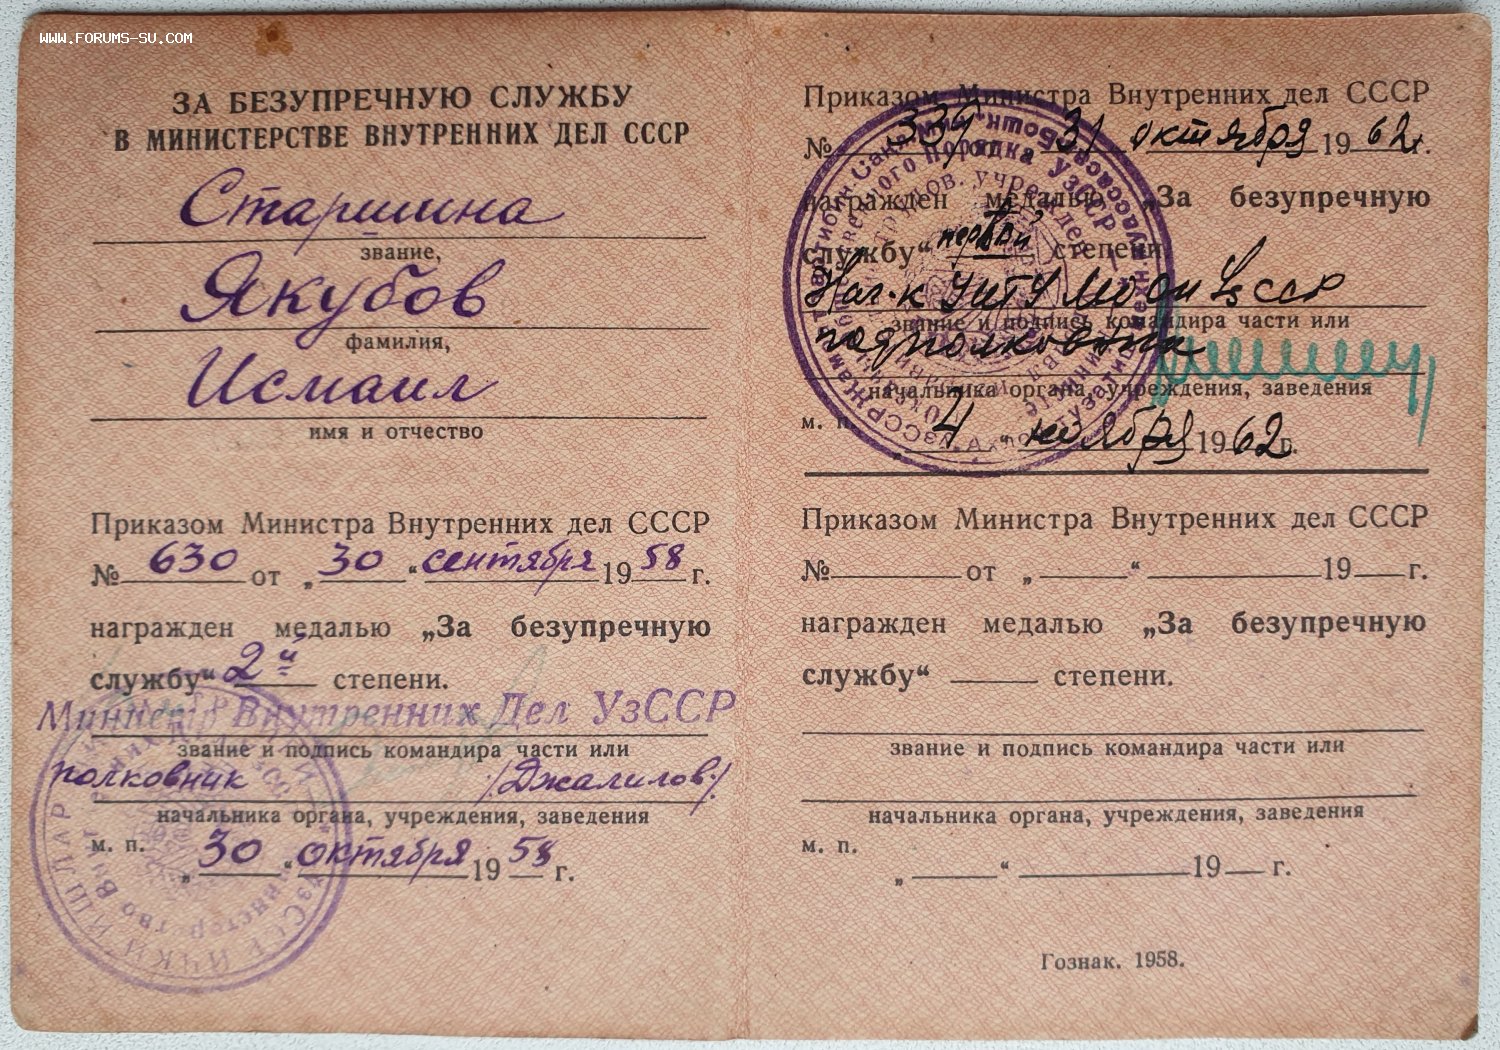 WWW.FORUMS-SU.COM
ЗА БЕЗУПРЕЧНУЮ СЛУЖБУ
В МИНИСТЕРСТВЕ ВНУТРЕННИХ ДЕЛ СССР
Старшина
звание,
Якубов
фамилия,
Исмаил
имя и отчество
Приказом Министра Внутренних дел СССР
№ 630 от „30“ сентября 1958 г.
награжден медалью „За безупречную
службу“ 2й степени.
Министр Внутренних Дел УзССР
звание и подпись командира части или
полковник /Джалилов/
начальника органа, учреждения, заведения
м. п.
„30“ октября 1958 г.
Приказом Министра Внутренних дел СССР
№ 339 31 октября 1962 г.
награжден медалью „За безупречную
службу“ первой степени
Нач-к УИТУ МООП УзССР
звание и подпись командира части или
подполковник
начальника органа, учреждения, заведения
м. п.
„4“ ноября 1962 г.
Приказом Министра Внутренних дел СССР
№ от „ “ 19 г.
награжден медалью „За безупречную
службу“ степени.
звание и подпись командира части или
начальника органа, учреждения, заведения
м. п.
„ “ 19 г.
Гознак. 1958.